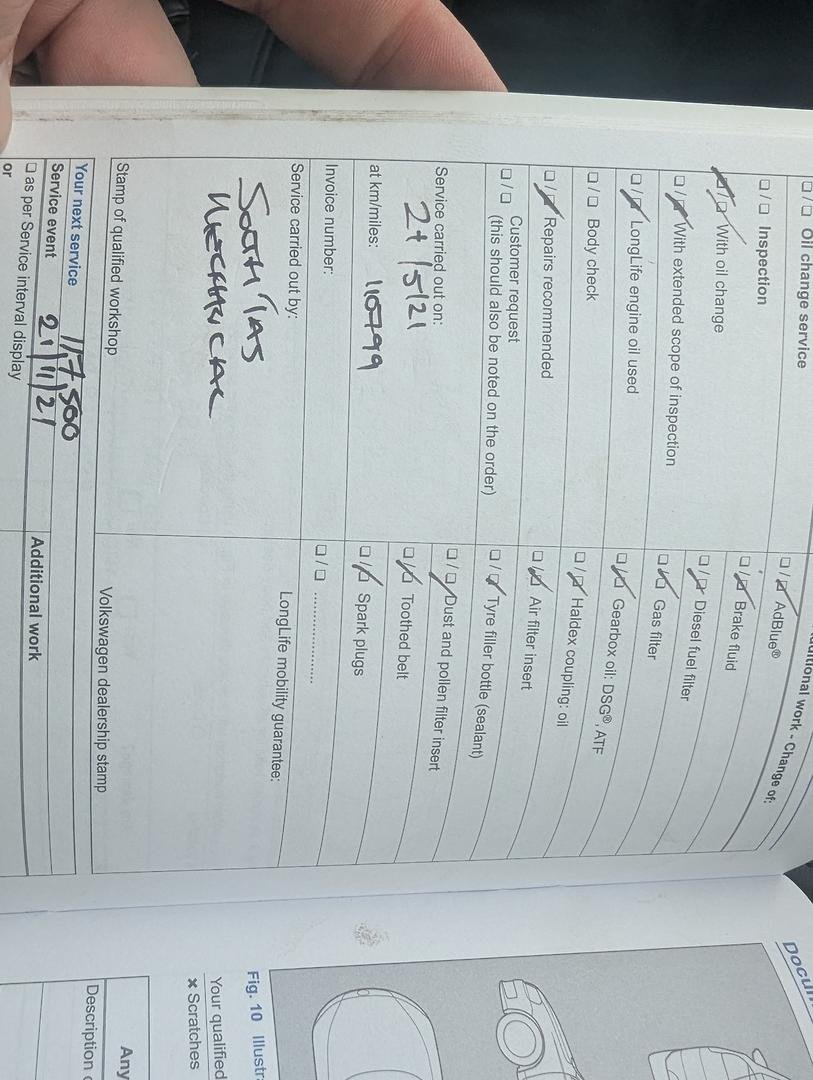 ☐ / ☐ Oil change service
☐ / ☐ Inspection
☑ / ☐ With oil change
☐ / ☑ With extended scope of inspection
☐ / ☑ LongLife engine oil used
☐ / ☐ Body check
☐ / ☑ Repairs recommended
☐ / ☐ Customer request
(this should also be noted on the order)
Service carried out on:
at km/miles: 110799
Invoice number:
Service carried out by:
SOUTH TAS
MECHANICAL
Stamp of qualified workshop
ditional work - Change of:
☐ / ☑ AdBlue®
☐ / ☑ Brake fluid
☐ / ☑ Diesel fuel filter
☐ / ☑ Gas filter
☐ / ☑ Gearbox oil: DSG®, ATF
☐ / ☑ Haldex coupling: oil
☐ / ☑ Air filter insert
☐ / ☑ Tyre filler bottle (sealant)
☐ / ☑ Dust and pollen filter insert
☐ / ☑ Toothed belt
☐ / ☑ Spark plugs
☐ / ☐ ....................
LongLife mobility guarantee:
Volkswagen dealership stamp
Your next service 117,500
Service event 21/11/21
☐ as per Service interval display
or
Additional work
Docum
Fig. 10 Illustra
Your qualified
× Scratches
Any
Description